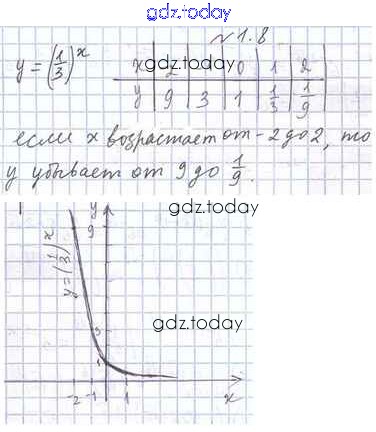 gdz.today
№1.8
y = (1/3)^x
x | 2 | | 0 | 1 | 2
gdz.today
y | 9 | 3 | 1 | 1/3 | 1/9
если x возрастает от -2 до 2, то
y убывает от 9 до 1/9.
gdz.today
y
9
y = (1/3)^x
gdz.today
3
1
-2 -1 1 x